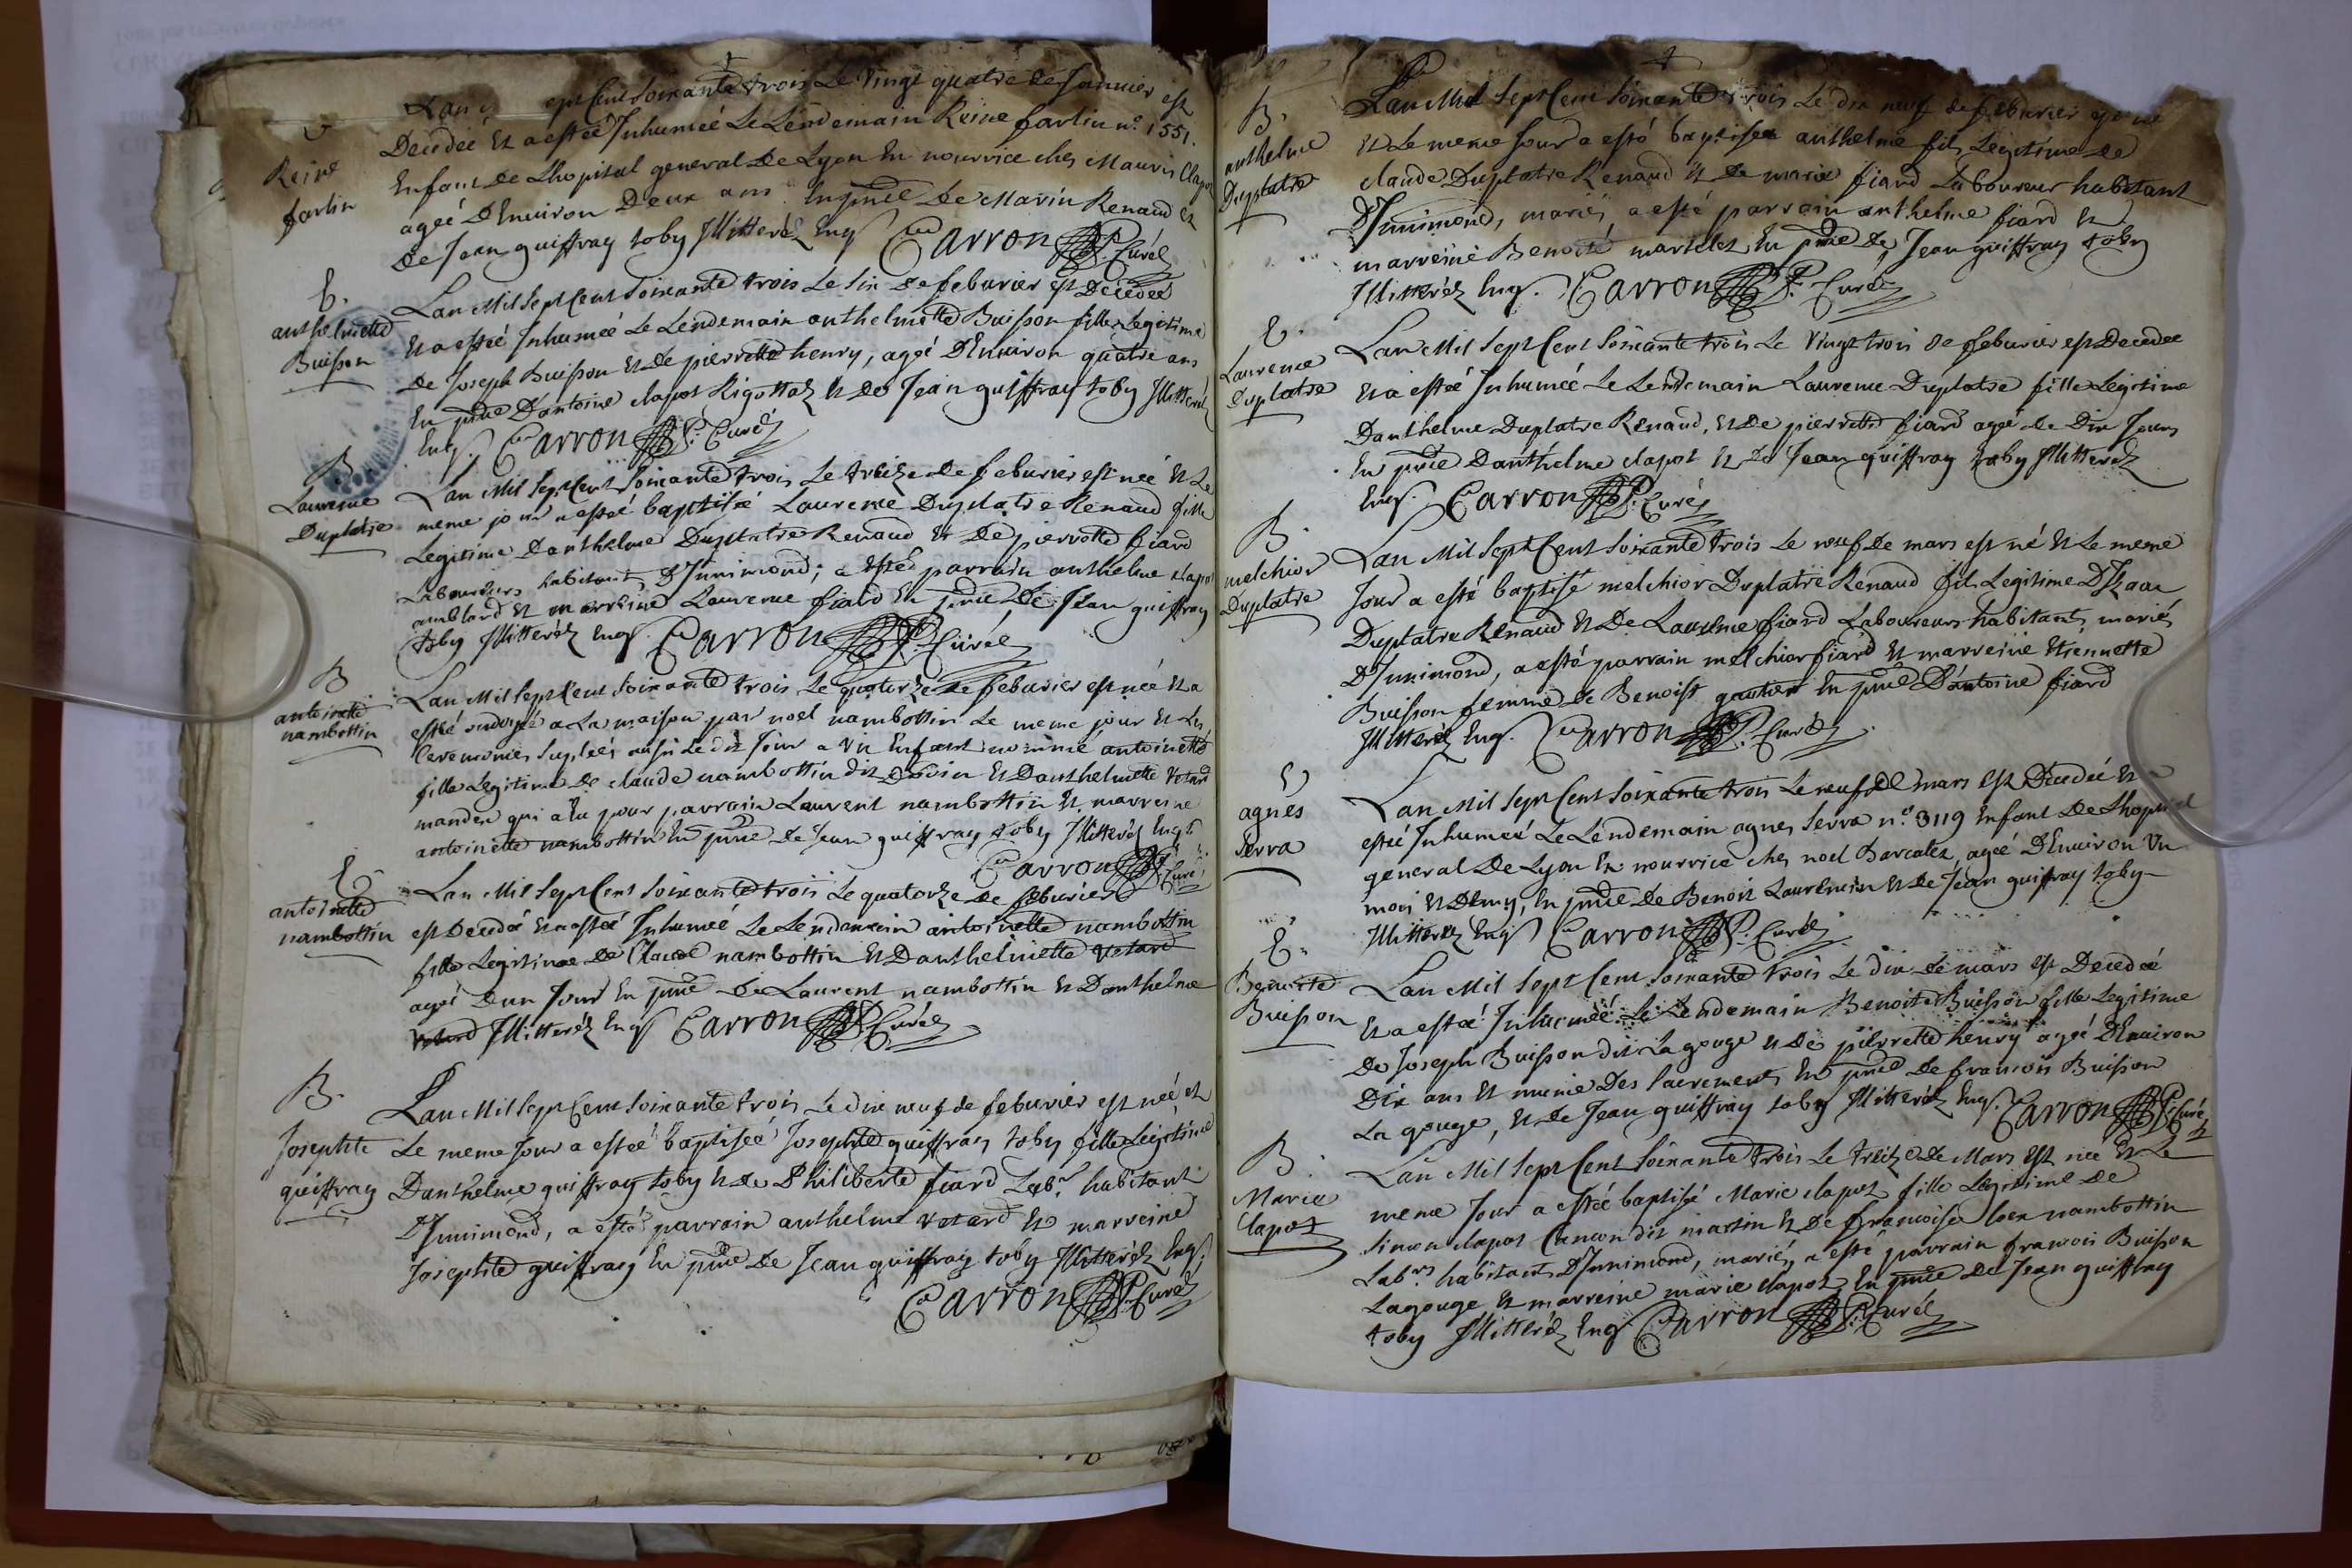 Lan sept Cent soixante trois Le Vingt quatre de Janvier est
Reine
farlin
Decedeé Et a esteé Inhumeé Le Lendemain Reine farlin n.o 1551.
Enfant De Lhopital general De Lyon En nourrice ches Mauris Clapot
ageé DEnviron Deux ans En pñce De Marin Renaud et
de Jean guiffray toby Illitteréz Enq Carron Curéz
E.
anthelmette
Buisson
Lan Mil Sept Cent Soixante trois Le six de feburier est Decedeé
Et a esteé Inhumeé Le Lendemain anthelmette Buisson fille Legitime
De Joseph Buisson Et De pierrette henry, ageé DEnviron quatre ans
En pñce Dantoine clapot Rigottaz Et De Jean guiffray toby Illitteréz
Enq. Carron P. Curéz
B
Laurence
Duplatre
Lan Mil Sept Cent Soixante trois Le treize de feburier est neé Et Le
meme jour a esteé baptiseé Laurence Duplatre Renaud fille
Legitime Danthelme Duplatre Renaud Et De pierrette fiard
Laboureurs habitants DInnimond, a esté parrain anthelme clapot
amblard Et marreine Laurence fiard En pñce De Jean guiffray
toby Illitteréz Enq. Carron P. Curéz
B
antoinette
nambottin
Lan Mil Sept Cent Soixante trois Le quatorze de feburier est neé Et a
esté ondoyé a La maison par noel nambottin Le meme jour Et Les
Ceremonies Supleés aussi Le dit Jour a Un Enfant nommé antoinette
fille Legitime de claude nambottin dit Et Danthelmette Vetard
mandex qui a Eu pour parrain Laurent nambottin Et marreine
antoinette nambottin En pñce de Jean guiffray toby Illitteréz Enq.
Carron P. Curé
E.
antoinette
nambottin
Lan Mil Sept Cent Soixante trois Le quatorze de feburier
est Decedeé Et a esteé Inhumeé Le Lendemain antoinette nambottin
fille Legitime De Claude nambottin Et Danthelmette Vetard
ageé Dun Jour En pñce de Laurent nambottin Et Danthelme
Vetard Illitteréz Enq Carron P. Curéz
B.
Josephte
guiffray
Lan Mil Sept Cent Soixante trois Le dix neuf de feburier est neé et
Le meme Jour a esteé baptiseé Josephte guiffray toby fille Legitime
Danthelme guiffray toby Et de Philiberte fiard Lab.rs habitants
DInnimond, a esté parrain anthelme vetard Et marreine
Josephte guiffray En pñce De Jean guiffray toby Illitteréz Enq.
Carron P. Curéz
B.
anthelme
Duplatre
Lan Mil Sept Cent Soixante trois Le dix neuf de feburier
Et Le meme Jour a esté baptisé anthelme fils Legitime de
claude Duplatre Renaud Et De marie fiard Laboureurs habitants
DInnimond, mariés, a esté parrain anthelme fiard Et
marreine Benoite martelet En pñce De Jean guiffray toby
Illitteréz Enq. Carron P. Curéz
E.
Laurence
Duplatre
Lan Mil Sept Cent Soixante trois Le Vingt trois de feburier est Decedeé
Et a esteé Inhumeé Le Lendemain Laurence Duplatre fille Legitime
Danthelme Duplatre Renaud, Et De pierrette fiard ageé de Dix Jours
En pñce Danthelme clapot Et De Jean guiffray toby Illitteréz
Enq. Carron P. Curéz
B.
melchior
Duplatre
Lan Mil Sept Cent Soixante trois Le neuf De mars est né Et Le meme
Jour a esté baptisé melchior Duplatre Renaud fils Legitime DIzaac
Duplatre Renaud Et De Laurence fiard Laboureurs habitants mariés
DInnimond, a esté parrain melchior fiard Et marreine Etiennette
Buisson femme de Benoist gautier En pñce Dantoine fiard
Illitteréz Enq. Carron P. Curéz
E
agnes
Serra
Lan Mil Sept Cent Soixante trois Le neuf de mars est Decedeé Et a
esteé Inhumeé Le Lendemain agnes Serra n.o 3119 Enfant De Lhopital
general De Lyon En nourrice ches noel Barcatez, ageé DEnviron Un
mois Et Demy, En pñce De Benoit Laurencin Et De Jean guiffray toby
Illitteréz Enq Carron P. Curéz
E.
Benoite
Buisson
Lan Mil Sept Cent Soixante trois Le dix de mars est Decedeé
Et a esteé Inhumeé Le Lendemain Benoite Buisson fille Legitime
De Joseph Buisson dit La gouge Et De pierrette henry ageé DEnviron
Dix ans Et munie Des Sacrements En pñce De francois Buisson
La gouge, Et De Jean guiffray toby Illitteréz Enq. Carron P. Curé
B.
Marie
Clapot
Lan Mil Sept Cent Soixante trois Le treize de Mars est neé Et Le
meme Jour a esteé baptisé Marie clapot fille Legitime de
Simon clapot dit martin Et De francoise nambottin
Lab.rs habitants DInnimond, mariés, a esté parrain francois Buisson
Lagouge Et marreine marie clapot En pñce De Jean guiffray
toby Illitteréz Enq Carron P. Curéz